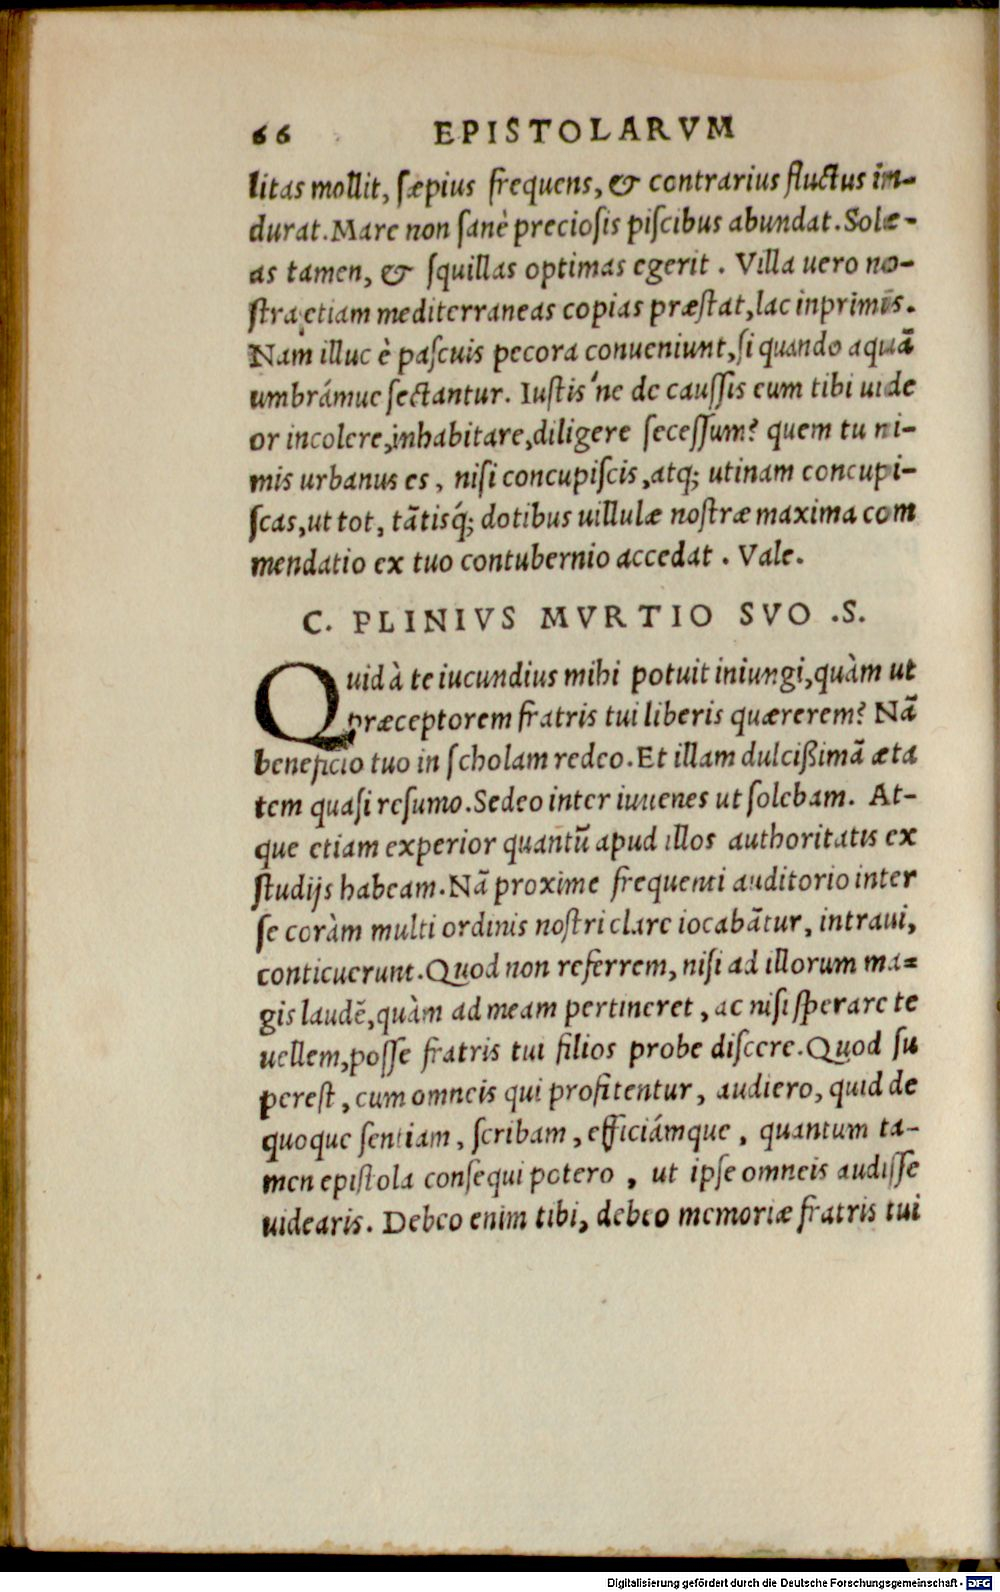 66 EPISTOLARVM
litas mollit, sæpius frequens, & contrarius fluctus im-
durat. Mare non sanè preciosis piscibus abundat. Soleæ-
as tamen, & squillas optimas egerit. Villa uero no-
stra etiam mediterraneas copias præstat, lac inprimis.
Nam illuc è pascuis pecora conueniunt, si quando aquã
umbrámue sectantur. Iustis'ne de caussis eum tibi uide
or incolere, inhabitare, diligere secessum? quem tu ni-
mis urbanus es, nisi concupiscis, atq; utinam concupi-
scas, ut tot, tãtisq́; dotibus uillulæ nostræ maxima com
mendatio ex tuo contubernio accedat. Vale.
C. PLINIVS MVRTIO SVO .S.
Quid à te iucundius mihi potuit iniungi, quàm ut
præceptorem fratris tui liberis quærerem? Nã
beneficio tuo in scholam redeo. Et illam dulcißimã æta
tem quasi resumo. Sedeo inter iuuenes ut solebam. At-
que etiam experior quantũ apud illos authoritatis ex
studijs habeam. Nã proxime frequenti auditorio inter
se coràm multi ordinis nostri clare iocabãtur, intraui,
conticuerunt. Quod non referrem, nisi ad illorum ma-
gis laudẽ, quàm ad meam pertineret, ac nisi sperare te
uellem, posse fratris tui filios probe discere. Quod su
perest, cum omneis qui profitentur, audiero, quid de
quoque sentiam, scribam, efficiámque, quantum ta-
men epistola consequi potero, ut ipse omneis audisse
uidearis. Debeo enim tibi, debeo memoriæ fratris tui
Digitalisierung gefördert durch die Deutsche Forschungsgemeinschaft - DFG